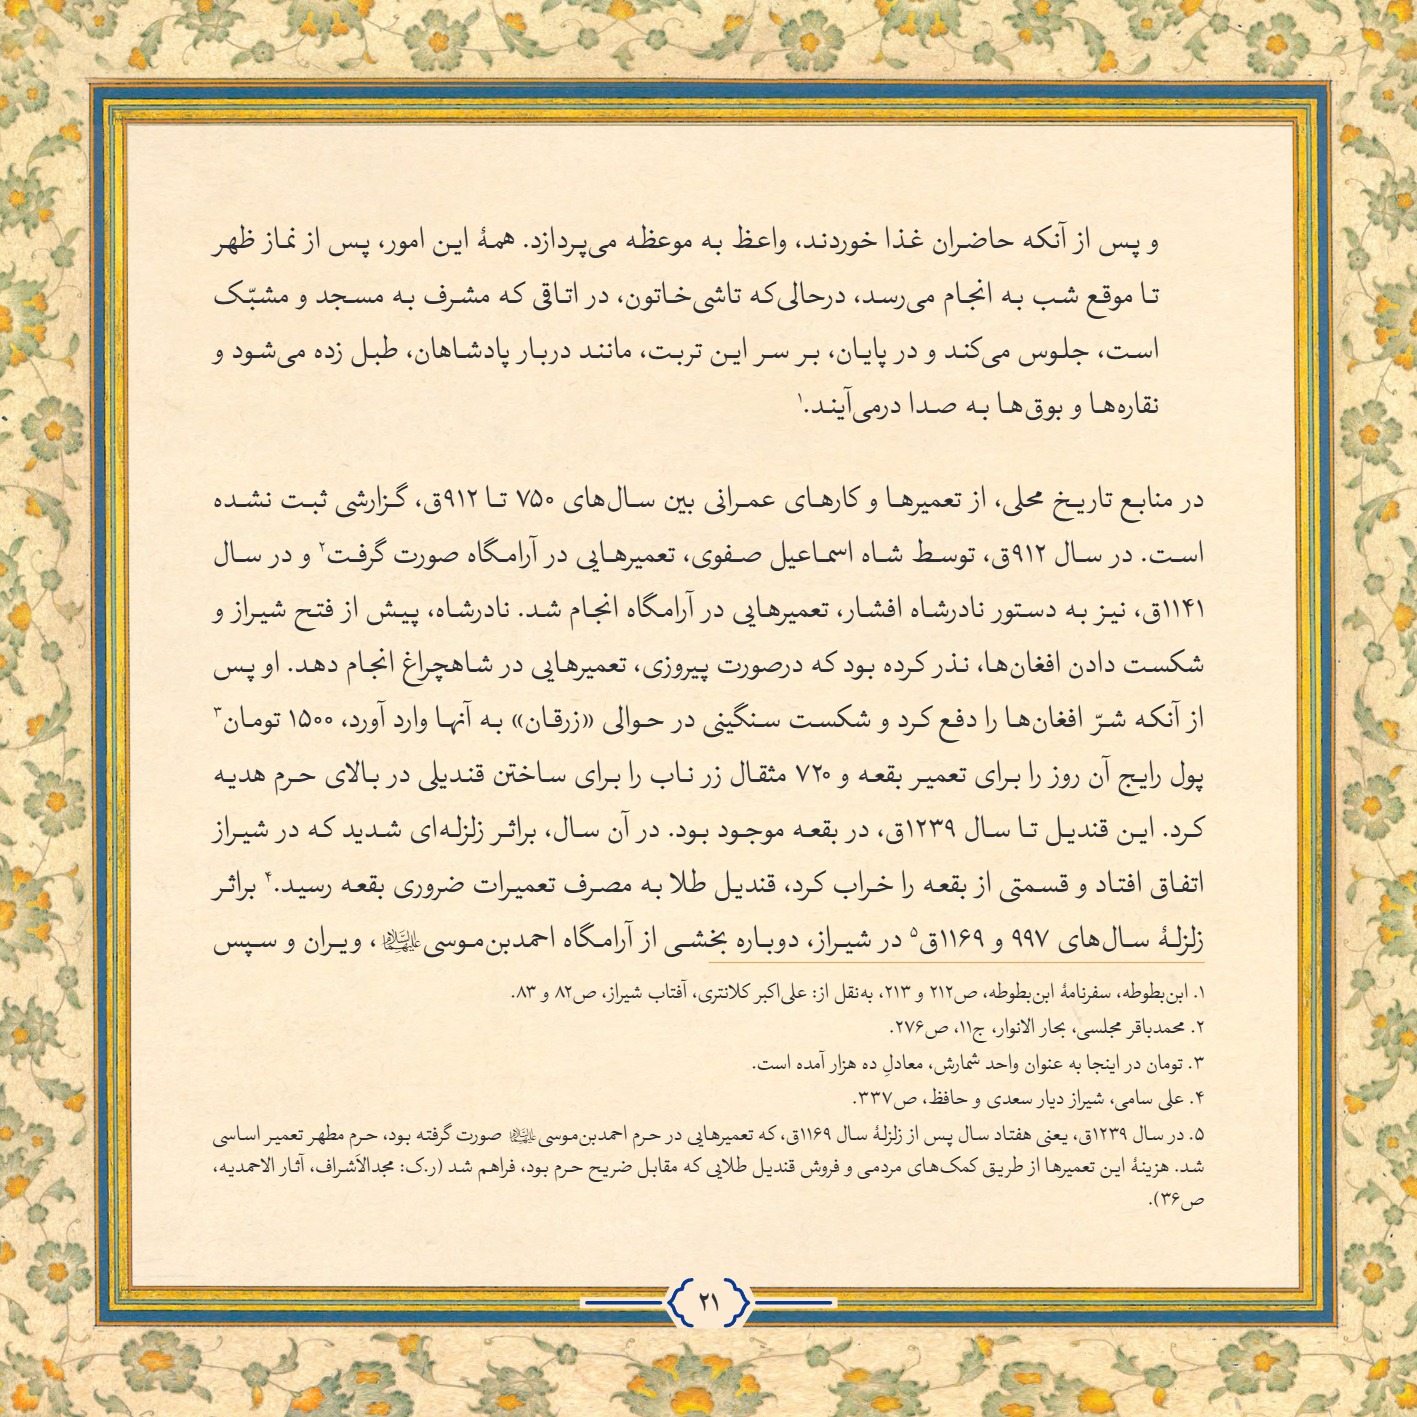 و پس از آنکه حاضران غذا خوردند، واعظ به موعظه می‌پردازد. همهٔ این امور، پس از نماز ظهر
تا موقع شب به انجام می‌رسد، درحالی‌که تاشی‌خاتون، در اتاقی که مشرف به مسجد و مشبّک
است، جلوس می‌کند و در پایان، بر سر این تربت، مانند دربار پادشاهان، طبل زده می‌شود و
نقاره‌ها و بوق‌ها به صدا درمی‌آیند.۱
در منابع تاریخ محلی، از تعمیرها و کارهای عمرانی بین سال‌های ۷۵۰ تا ۹۱۲ق، گزارشی ثبت نشده
است. در سال ۹۱۲ق، توسط شاه اسماعیل صفوی، تعمیرهایی در آرامگاه صورت گرفت۲ و در سال
۱۱۴۱ق، نیز به دستور نادرشاه افشار، تعمیرهایی در آرامگاه انجام شد. نادرشاه، پیش از فتح شیراز و
شکست دادن افغان‌ها، نذر کرده بود که درصورت پیروزی، تعمیرهایی در شاهچراغ انجام دهد. او پس
از آنکه شرّ افغان‌ها را دفع کرد و شکست سنگینی در حوالی «زرقان» به آنها وارد آورد، ۱۵۰۰ تومان۳
پول رایج آن روز را برای تعمیر بقعه و ۷۲۰ مثقال زر ناب را برای ساختن قندیلی در بالای حرم هدیه
کرد. این قندیل تا سال ۱۲۳۹ق، در بقعه موجود بود. در آن سال، براثر زلزله‌ای شدید که در شیراز
اتفاق افتاد و قسمتی از بقعه را خراب کرد، قندیل طلا به مصرف تعمیرات ضروری بقعه رسید.۴ براثر
زلزلهٔ سال‌های ۹۹۷ و ۱۱۶۹ق۵ در شیراز، دوباره بخشی از آرامگاه احمدبن‌موسی علیهما السلام، ویران و سپس
۱. ابن‌بطوطه، سفرنامهٔ ابن‌بطوطه، ص۲۱۲ و ۲۱۳، به‌نقل از: علی‌اکبر کلانتری، آفتاب شیراز، ص۸۲ و ۸۳.
۲. محمدباقر مجلسی، بحار الانوار، ج۱۱، ص۲۷۶.
۳. تومان در اینجا به عنوان واحد شمارش، معادلِ ده هزار آمده است.
۴. علی سامی، شیراز دیار سعدی و حافظ، ص۳۳۷.
۵. در سال ۱۲۳۹ق، یعنی هفتاد سال پس از زلزلهٔ سال ۱۱۶۹ق، که تعمیرهایی در حرم احمدبن‌موسی علیهما السلام صورت گرفته بود، حرم مطهر تعمیر اساسی
شد. هزینهٔ این تعمیرها از طریق کمک‌های مردمی و فروش قندیل طلایی که مقابل ضریح حرم بود، فراهم شد (ر.ک: مجدالاَشراف، آثار الاحمدیه،
ص۳۶).
۲۱